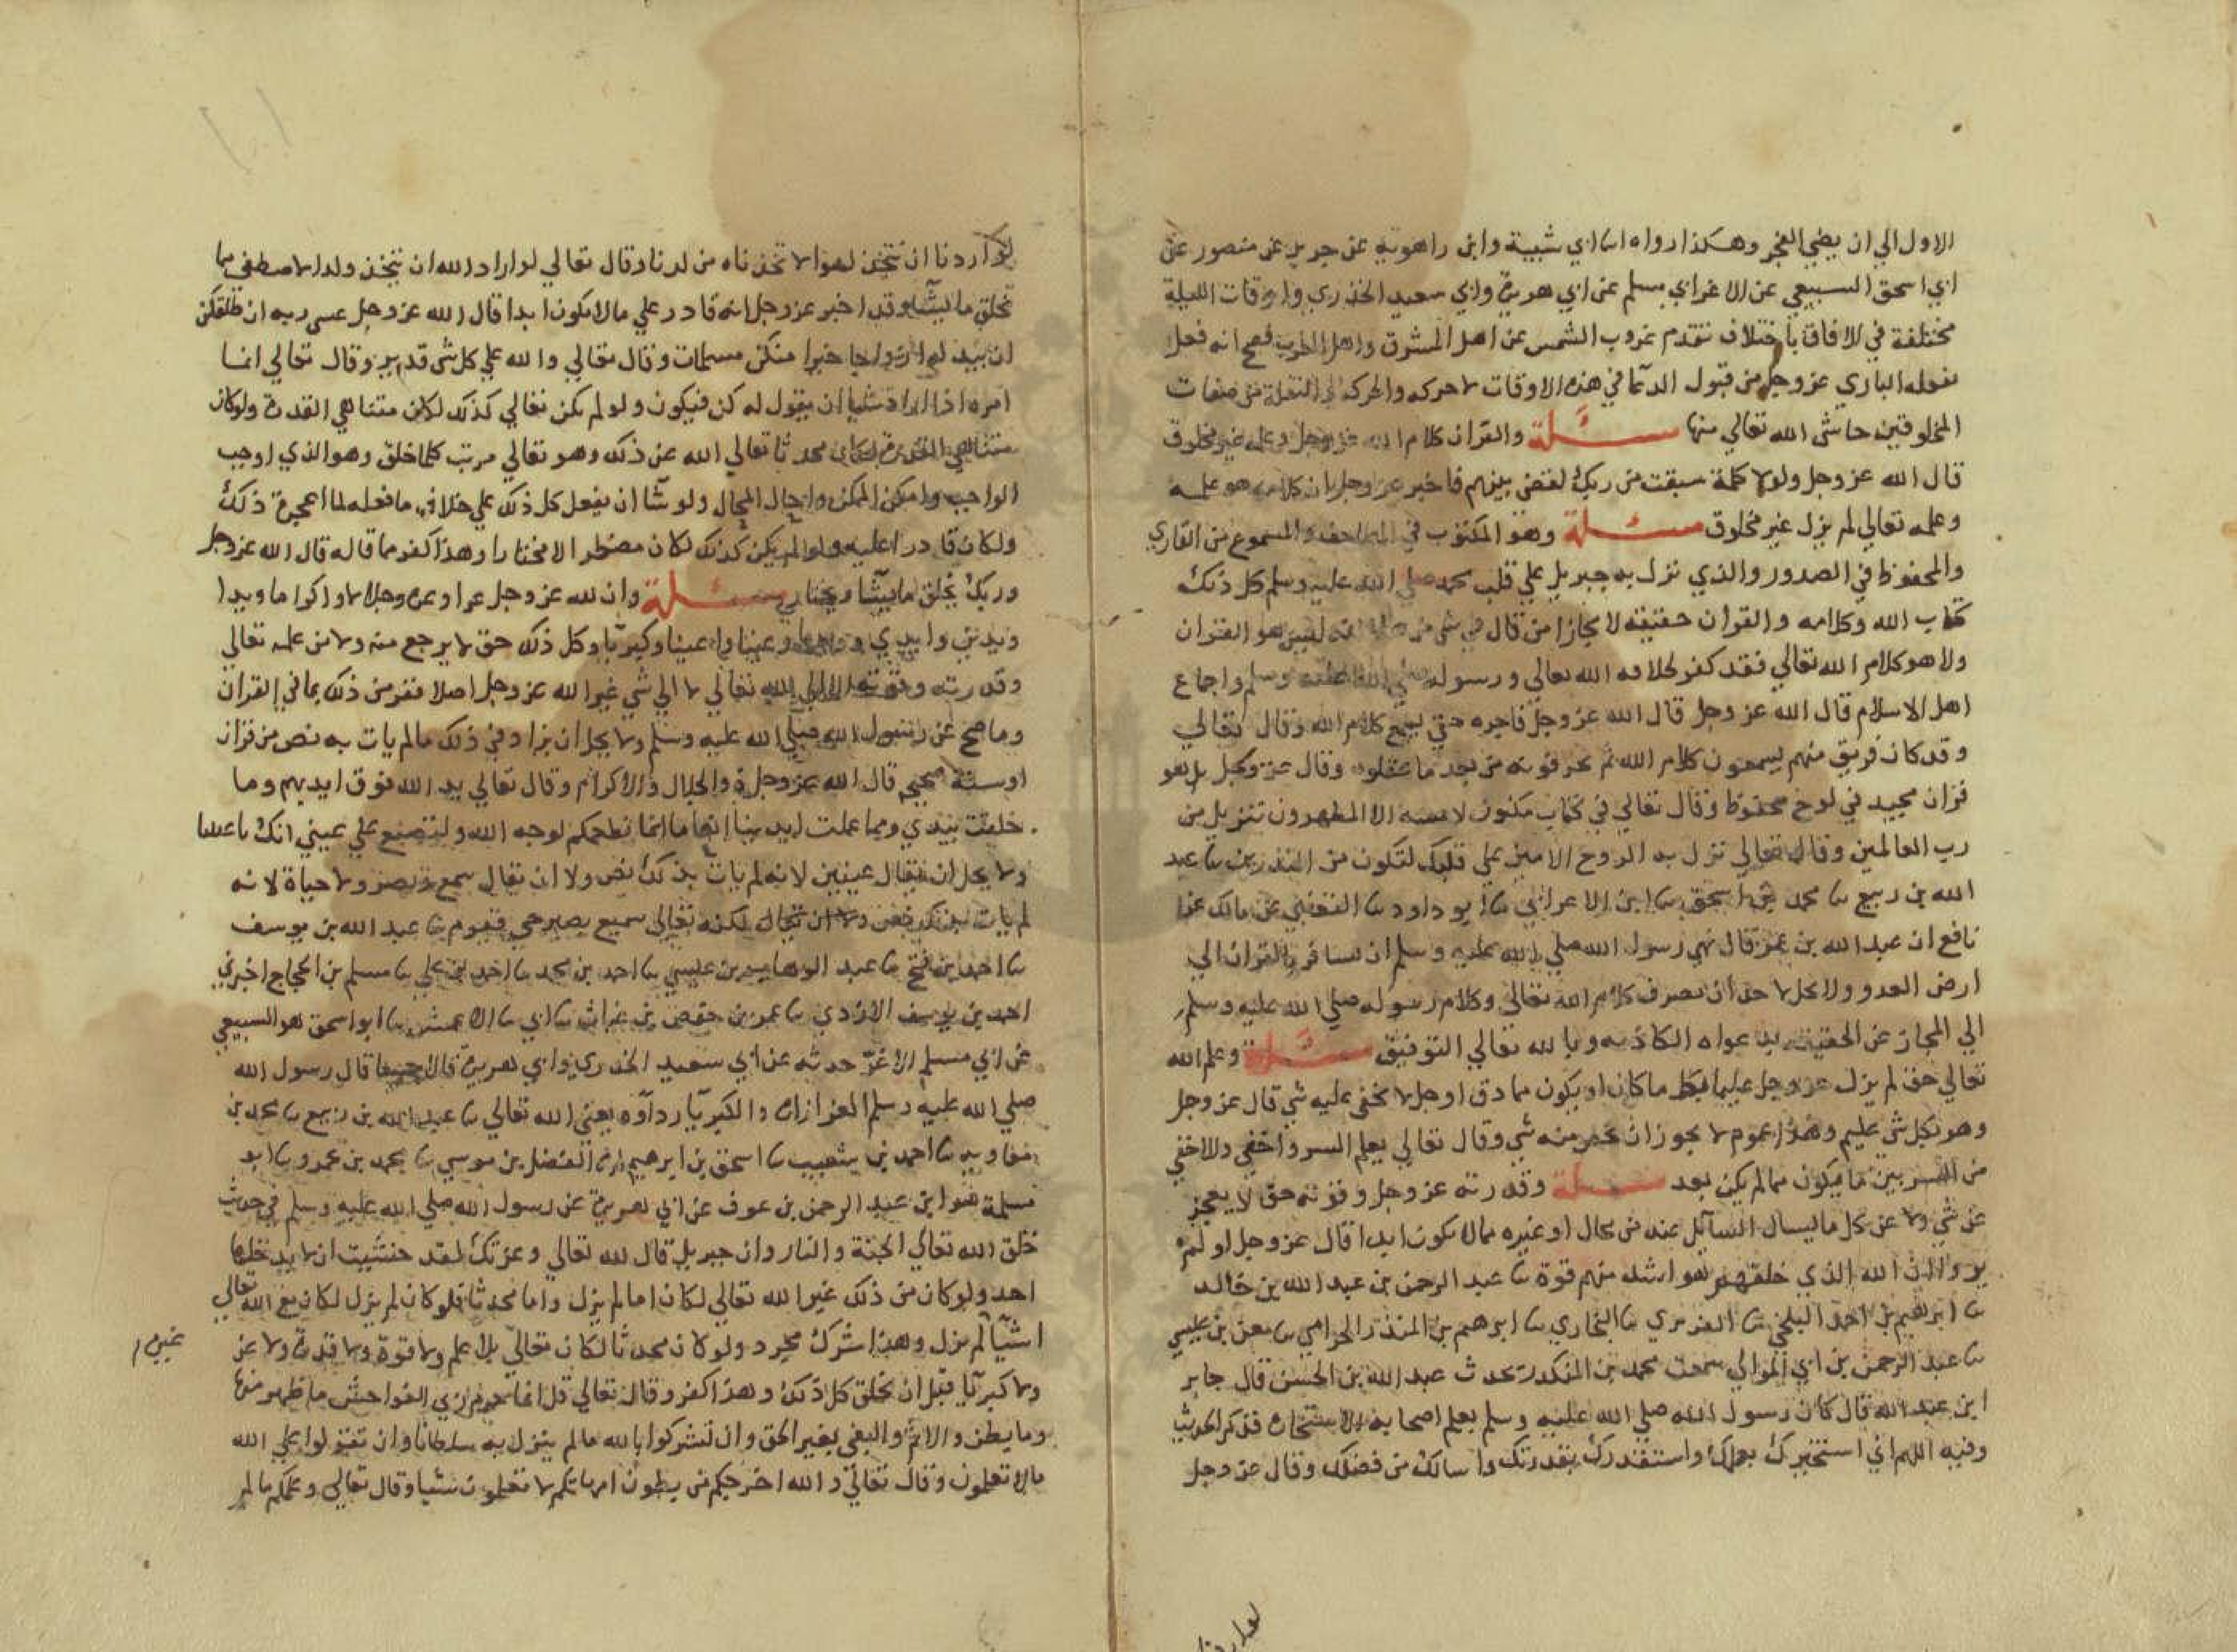 الاول الي ان يضي الفجر وهكذا رواه ابنا ابي شيبة وابن راهويه عن جرير عن منصور عن
ابي اسحق السبيعي عن الاغر ابي مسلم عن ابي هريرة وابي سعيد الخذري واوقات الليلة
مختلفة في الافاق باختلاف تقدم غروب الشمس عن اهل المشرق واهل المغرب فصح انه فعل
يفعله الباري عز وجل من قبول الدعا في هذه الاوقات لا حركه والحركه والنقلة من صفات
المخلوقين حاشى الله تعالي منها مسئلة والقران كلام الله عز وجل وعلمه غير مخلوق
قال الله عز وجل ولولا كلمة سبقت من ربك لقضي بينهم فاخبر عز وجل بان كلامه هو علمه
وعلمه تعالي لم يزل غير مخلوق مسئلة وهو المكتوب في المصاحف والمسموع من القاري
والمحفوظ في الصدور والذي نزل به جبريل علي قلب محمد صلي الله عليه وسلم كل ذلك
كتاب الله وكلامه والقران حقيقة لا مجازا من قال في شي من هذا انه ليس هو القران
ولا هو كلام الله تعالي فقد كفر لخلافه الله تعالي ورسوله صلي الله عليه وسلم واجماع
اهل الاسلام قال الله عز وجل قال الله عز وجل فاجره حتي يسمع كلام الله وقال تعالي
وقد كان فريق منهم يسمعون كلام الله ثم يحرفونه من بعد ما عقلوه وقال عز وجل بل هو
قران مجيد في لوح محفوظ وقال تعالي في كتاب مكنون لا يمسه الا المطهرون تنزيل من
رب العالمين وقال تعالي نزل به الروح الامين علي قلبك لتكون من المنذرين نا عبد
الله بن ربيع نا محمد بن اسحق نا ابن الاعرابي نا ابو داود نا القعنبي عن مالك عن
نافع ان عبد الله بن عمر قال نهي رسول الله صلي الله عليه وسلم ان يسافر بالقران الي
ارض العدو ولا يحل لاحد ان يصرف كلام الله تعالي وكلام رسوله صلي الله عليه وسلم
الي المجاز عن الحقيقة بدعواه الكاذبه وبالله تعالي التوفيق مسئلة وعلم الله
تعالي حق لم يزل عز وجل عليما بكل ما كان او يكون مما دق او جل لا يخفي عليه شي قال عز وجل
وهو بكل شي عليم وهذا عموم لا يجوز ان يخص منه شي وقال تعالي يعلم السر واخفي والاخفي
من السر بين ما يكون مما لم يكن بعد مسئلة وقدرته عز وجل وقوته حق لا يعجز
عن شي ولا عن كل ما يسال السايل عنه من محال او غيره مما لا يكون ابدا قال عز وجل اولم
يروا ان الله الذي خلقهم هو اشد منهم قوة نا عبد الرحمن بن عبد الله بن خالد
نا ابرهيم بن احمد البلخي نا الفربري نا البخاري نا ابرهيم بن المنذر الحزامي نا معن بن عيسي
نا عبد الرحمن بن ابي الموالي سمعت محمد بن المنكدر يحدث عبد الله بن الحسن قال جابر
ابن عبد الله قال كان رسول الله صلي الله عليه وسلم يعلم اصحابه الاستخارة فذكر الحديث
وفيه اللهم اني استخيرك بعلمك واستقدرك بقدرتك واسالك من فضلك وقال عز وجل
لو اردنا ان نتخذ لهوا لاتخذناه من لدنا وقال تعالي لو اراد الله ان يتخذ ولدا لاصطفي مما
يخلق ما يشا وقد اخبر عز وجل انه قادر علي ما لا يكون ابدا قال الله عز وجل عسي ربه ان طلقكن
ان يبدله ازواجا خيرا منكن مسلمات وقال تعالي والله علي كل شي قدير وقال تعالي انما
امره اذا اراد شيا ان يقول له كن فيكون ولو لم يكن تعالي كذلك لكان متناهي القدرة ولو كان
متناهي القدرة لكان محدثا تعالي الله عن ذلك وهو تعالي مرتب كلما خلق وهو الذي اوجب
الواجب وامكن الممكن واحال المحال ولو شا ان يفعل كل ذلك علي خلاف ما فعله لما اعجزه ذلك
ولكان قادرا عليه ولو لم يكن كذلك لكان مضطرا لا مختارا وهذا كفر مما قاله قال الله عز وجل
وربك يخلق ما يشا ويختار مسئلة وان لله عز وجل عزا وعزة وجلالا واكراما ويدا
ويدين وايدي ووجها وعينا واعينا وكبريا وكل ذلك حق لا يرجع منه ولا من علمه تعالي
وقدرته وقوته الا الي الله تعالي لا الي شي غير الله عز وجل اصلا نقر من ذلك بما في القران
وما صح عن رسول الله صلي الله عليه وسلم ولا يحل ان يزاد في ذلك ما لم يات به نص من قران
او سنة صحيح قال الله عز وجل ذو الجلال والاكرام وقال تعالي يد الله فوق ايديهم وما
خلقت بيدي ومما عملت ايدينا انعاما انما نطعمكم لوجه الله ولتصنع علي عيني انك باعيننا
ولا يحل ان يقال عينين لانه لم يات بذلك نص ولا ان يقال سمع وبصر ولا حياة لانه
لم يات بذلك نص ولا ان يقال لكنه تعالي سميع بصير حي قيوم نا عبد الله بن يوسف
نا احمد بن فتح نا عبد الوهاب بن عيسي نا احمد بن محمد نا احمد بن علي نا مسلم بن الحجاج اخبرني
احمد بن يوسف الازدي نا عمر بن حفص بن غياث نا ابي نا الاعمش نا ابو اسحق هو السبيعي
عن ابي مسلم الاغر حدثه عن ابي سعيد الخدري وابي هريرة قالا جميعا قال رسول الله
صلي الله عليه وسلم العز ازاره والكبريا رداوه يعني الله تعالي نا عبد الله بن ربيع نا محمد بن
معاويه نا احمد بن شعيب نا اسحق بن ابرهيم انا الفضل بن موسي نا محمد بن عمرو نا ابو
سلمة هو ابن عبد الرحمن بن عوف عن ابي هريرة عن رسول الله صلي الله عليه وسلم في حديث
خلق الله تعالي الجنة والنار وان جبريل قال لله تعالي وعزتك لقد خشيت ان لا يدخلها
احد ولو كان من ذلك غير الله تعالي لكان اما لم يزل واما محدثا فلو كان لم يزل لكان مع الله تعالي
اشيا لم يزل وهذا شرك مجرد ولو كان محدثا لكان تعالي بلا علم ولا قوة ولا قدرة ولا عز
ولا كبريا قبل ان يخلق كل ذلك وهذا كفر وقال تعالي قل انما حرم ربي الفواحش ما ظهر منها
وما بطن والاثم والبغي بغير الحق وان تشركوا بالله ما لم ينزل به سلطانا وان تقولوا علي الله
ما لا تعلمون وقال تعالي والله اخرجكم من بطون امهاتكم لا تعلمون شيا وقال تعالي وعلمكم ما لم